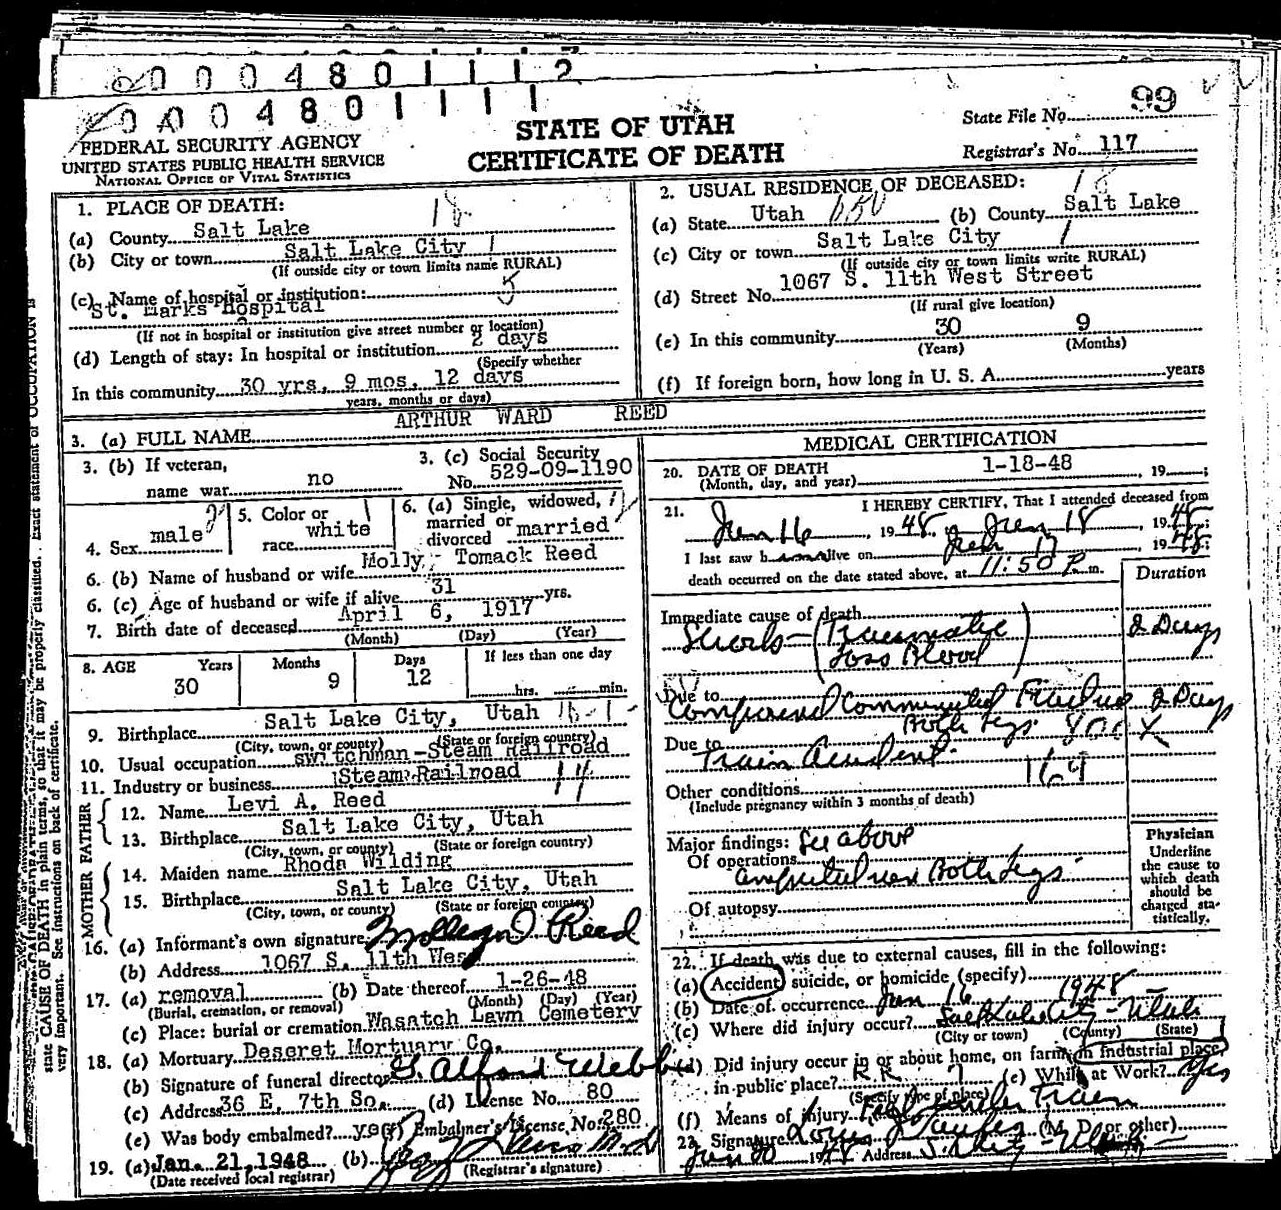 0004801112
0004801111
99
FEDERAL SECURITY AGENCY
UNITED STATES PUBLIC HEALTH SERVICE
NATIONAL OFFICE OF VITAL STATISTICS
STATE OF UTAH
CERTIFICATE OF DEATH
State File No.
Registrar's No. 117
1. PLACE OF DEATH: 18
(a) County Salt Lake
(b) City or town Salt Lake City 1
(If outside city or town limits name RURAL)
(c) Name of hospital or institution: 5
St. Marks Hospital
(If not in hospital or institution give street number or location)
(d) Length of stay: In hospital or institution 2 days
(Specify whether
In this community 30 yrs, 9 mos, 12 days
years, months or days)
2. USUAL RESIDENCE OF DECEASED: 18
(a) State Utah (b) County Salt Lake
(c) City or town Salt Lake City 1
(If outside city or town limits write RURAL)
(d) Street No. 1067 S. 11th West Street
(If rural give location)
(e) In this community 30 9
(Years) (Months)
(f) If foreign born, how long in U. S. A. years
3. (a) FULL NAME ARTHUR WARD REED
3. (b) If veteran,
name war no
3. (c) Social Security
No. 529-09-1190
4. Sex male
5. Color or
race white
6. (a) Single, widowed,
married or
divorced married
6. (b) Name of husband or wife Molly Tomack Reed
6. (c) Age of husband or wife if alive 31 yrs.
7. Birth date of deceased April 6, 1917
(Month) (Day) (Year)
8. AGE Years Months Days If less than one day
30 9 12 hrs. min.
9. Birthplace Salt Lake City, Utah
(City, town, or county) (State or foreign country)
10. Usual occupation switchman-Steam Railroad
11. Industry or business Steam Railroad 14
FATHER
12. Name Levi A. Reed
13. Birthplace Salt Lake City, Utah
(City, town, or county) (State or foreign country)
MOTHER
14. Maiden name Rhoda Wilding
15. Birthplace Salt Lake City, Utah
(City, town, or county) (State or foreign country)
16. (a) Informant's own signature Reed
(b) Address 1067 S. 11th West
17. (a) removal (b) Date thereof 1-26-48
(Burial, cremation, or removal) (Month) (Day) (Year)
(c) Place: burial or cremation Wasatch Lawn Cemetery
18. (a) Mortuary Deseret Mortuary Co.
(b) Signature of funeral director G. Alford Webb
(c) Address 36 E. 7th So. (d) License No. 80
(e) Was body embalmed? yes (f) Embalmer's License No. 280
19. (a) Jan. 21, 1948 (b)
(Date received local registrar) (Registrar's signature)
MEDICAL CERTIFICATION
20. DATE OF DEATH 1-18-48, 19 ;
(Month, day, and year)
21. I HEREBY CERTIFY, That I attended deceased from
Jan 16, 1948, to Jan 18, 1948;
I last saw him alive on Jan 17 1948;
death occurred on the date stated above, at 11:50 P m.
Duration
Immediate cause of death
Shock - (Traumatic 2 Days
Loss Blood)
Due to
Compound Comminuted Fracture 2 Days
Both Legs
Due to
Train Accident 169
Other conditions
(Include pregnancy within 3 months of death)
Major findings: See above
Of operations
amputation Both Legs
Of autopsy
Physician
Underline
the cause to
which death
should be
charged sta-
tistically.
22. If death was due to external causes, fill in the following:
(a) Accident, suicide, or homicide (specify)
(b) Date of occurrence Jan 16 1948
(c) Where did injury occur? Salt Lake City - Utah
(City or town) (County) (State)
(d) Did injury occur in or about home, on farm, in industrial place,
in public place? RR (e) While at Work? Yes
(Specify type of place)
(f) Means of injury Fell under Train
23. Signature (M. D. or other)
Jan 20 1948 Address
state CAUSE OF DEATH in plain terms, so that it may be properly classified. Exact statement of OCCUPATION is
very important. See instructions on back of certificate.